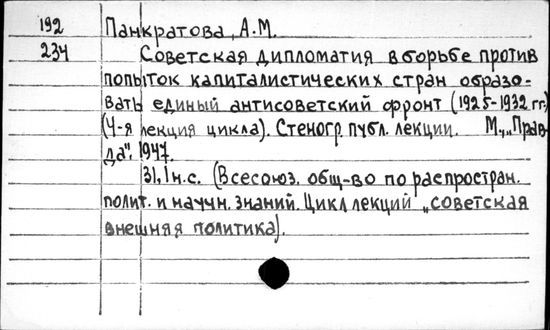 192 Панкратова, А.М.
234 Советская дипломатия в борьбе против
попыток капиталистических стран образо-
вать единый антисоветский фронт (1925-1932 гг.)
(4-я лекция цикла). Стеногр. публ. лекции. М., „Прав-
да", 1947.
31, 1 н.с. (Всесоюз. общ-во по распростран.
полит. и научн. знаний. Цикл лекций „советская
внешняя политика).